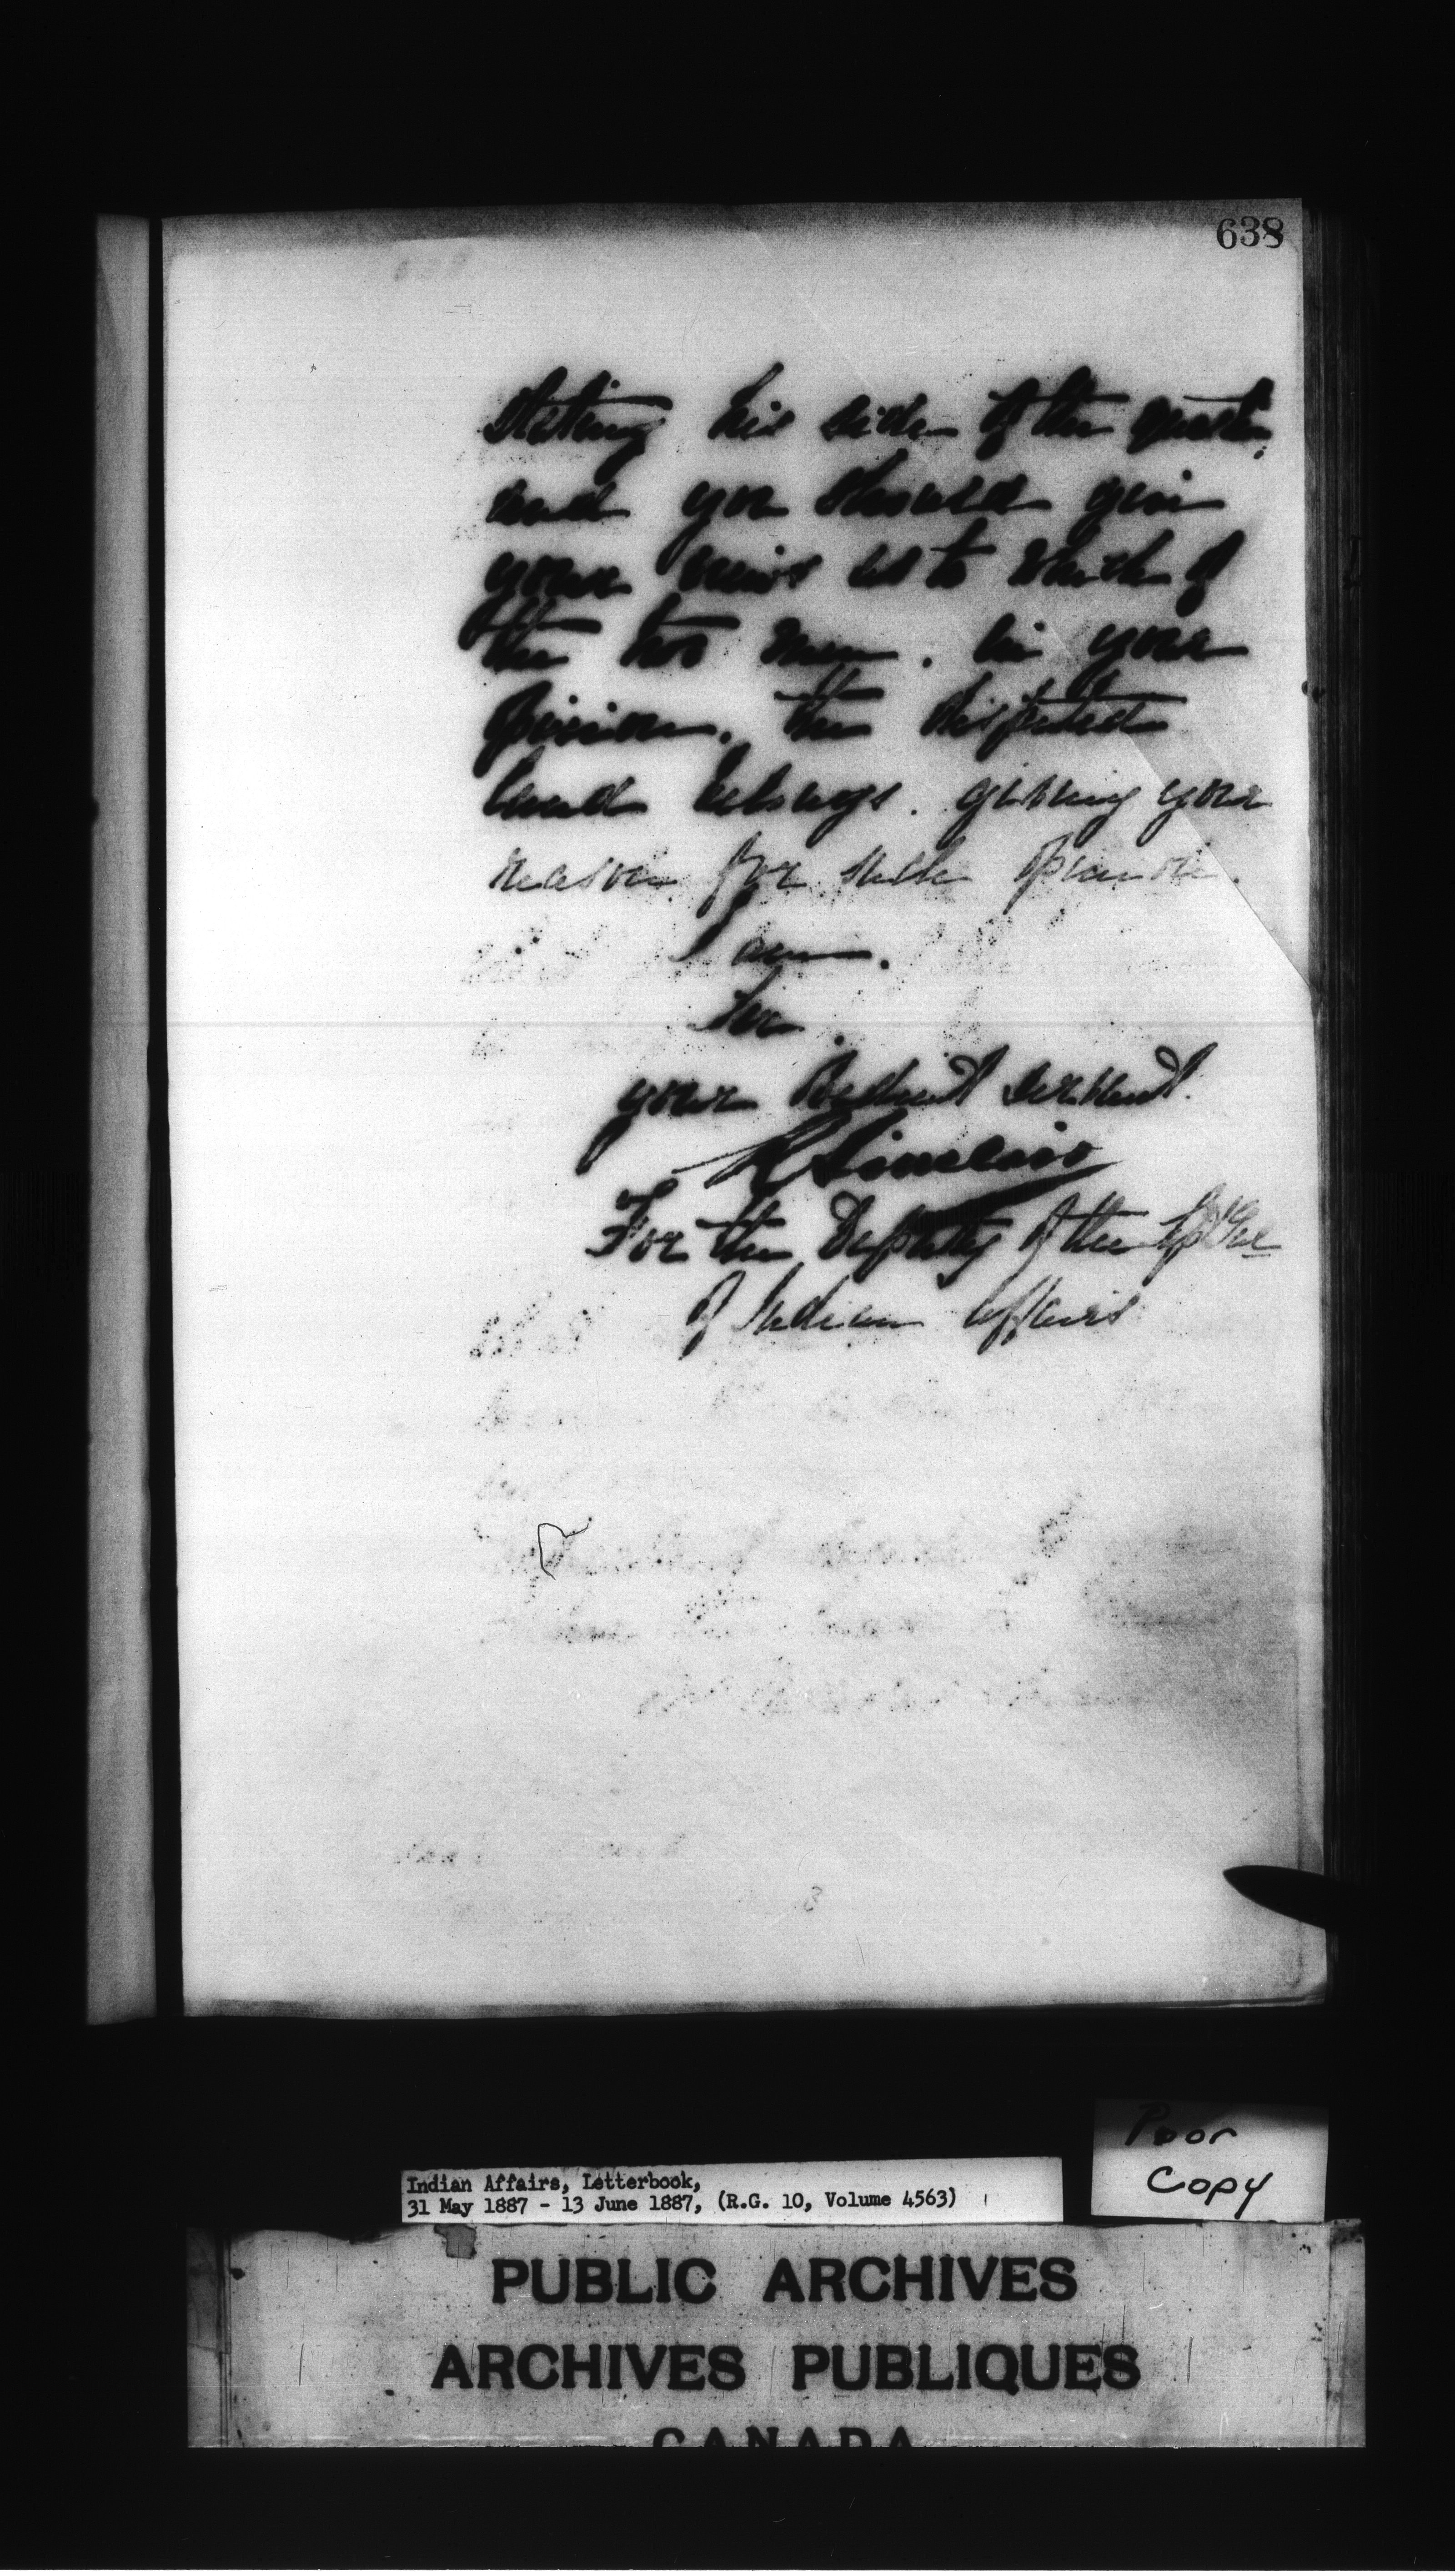 638
stating his side of the questn
and you should give
your views as to which of
the two men, in your
opinion, the disputed
land belongs, giving your
reason for such opinion.
I am,
Sir,
your obedient servant.
R Sinclair
For the Deputy of the Supt Gen
of Indian Affairs
Poor
Copy
Indian Affairs, Letterbook,
31 May 1887 - 13 June 1887, (R.G. 10, Volume 4563)
PUBLIC ARCHIVES
ARCHIVES PUBLIQUES
CANADA